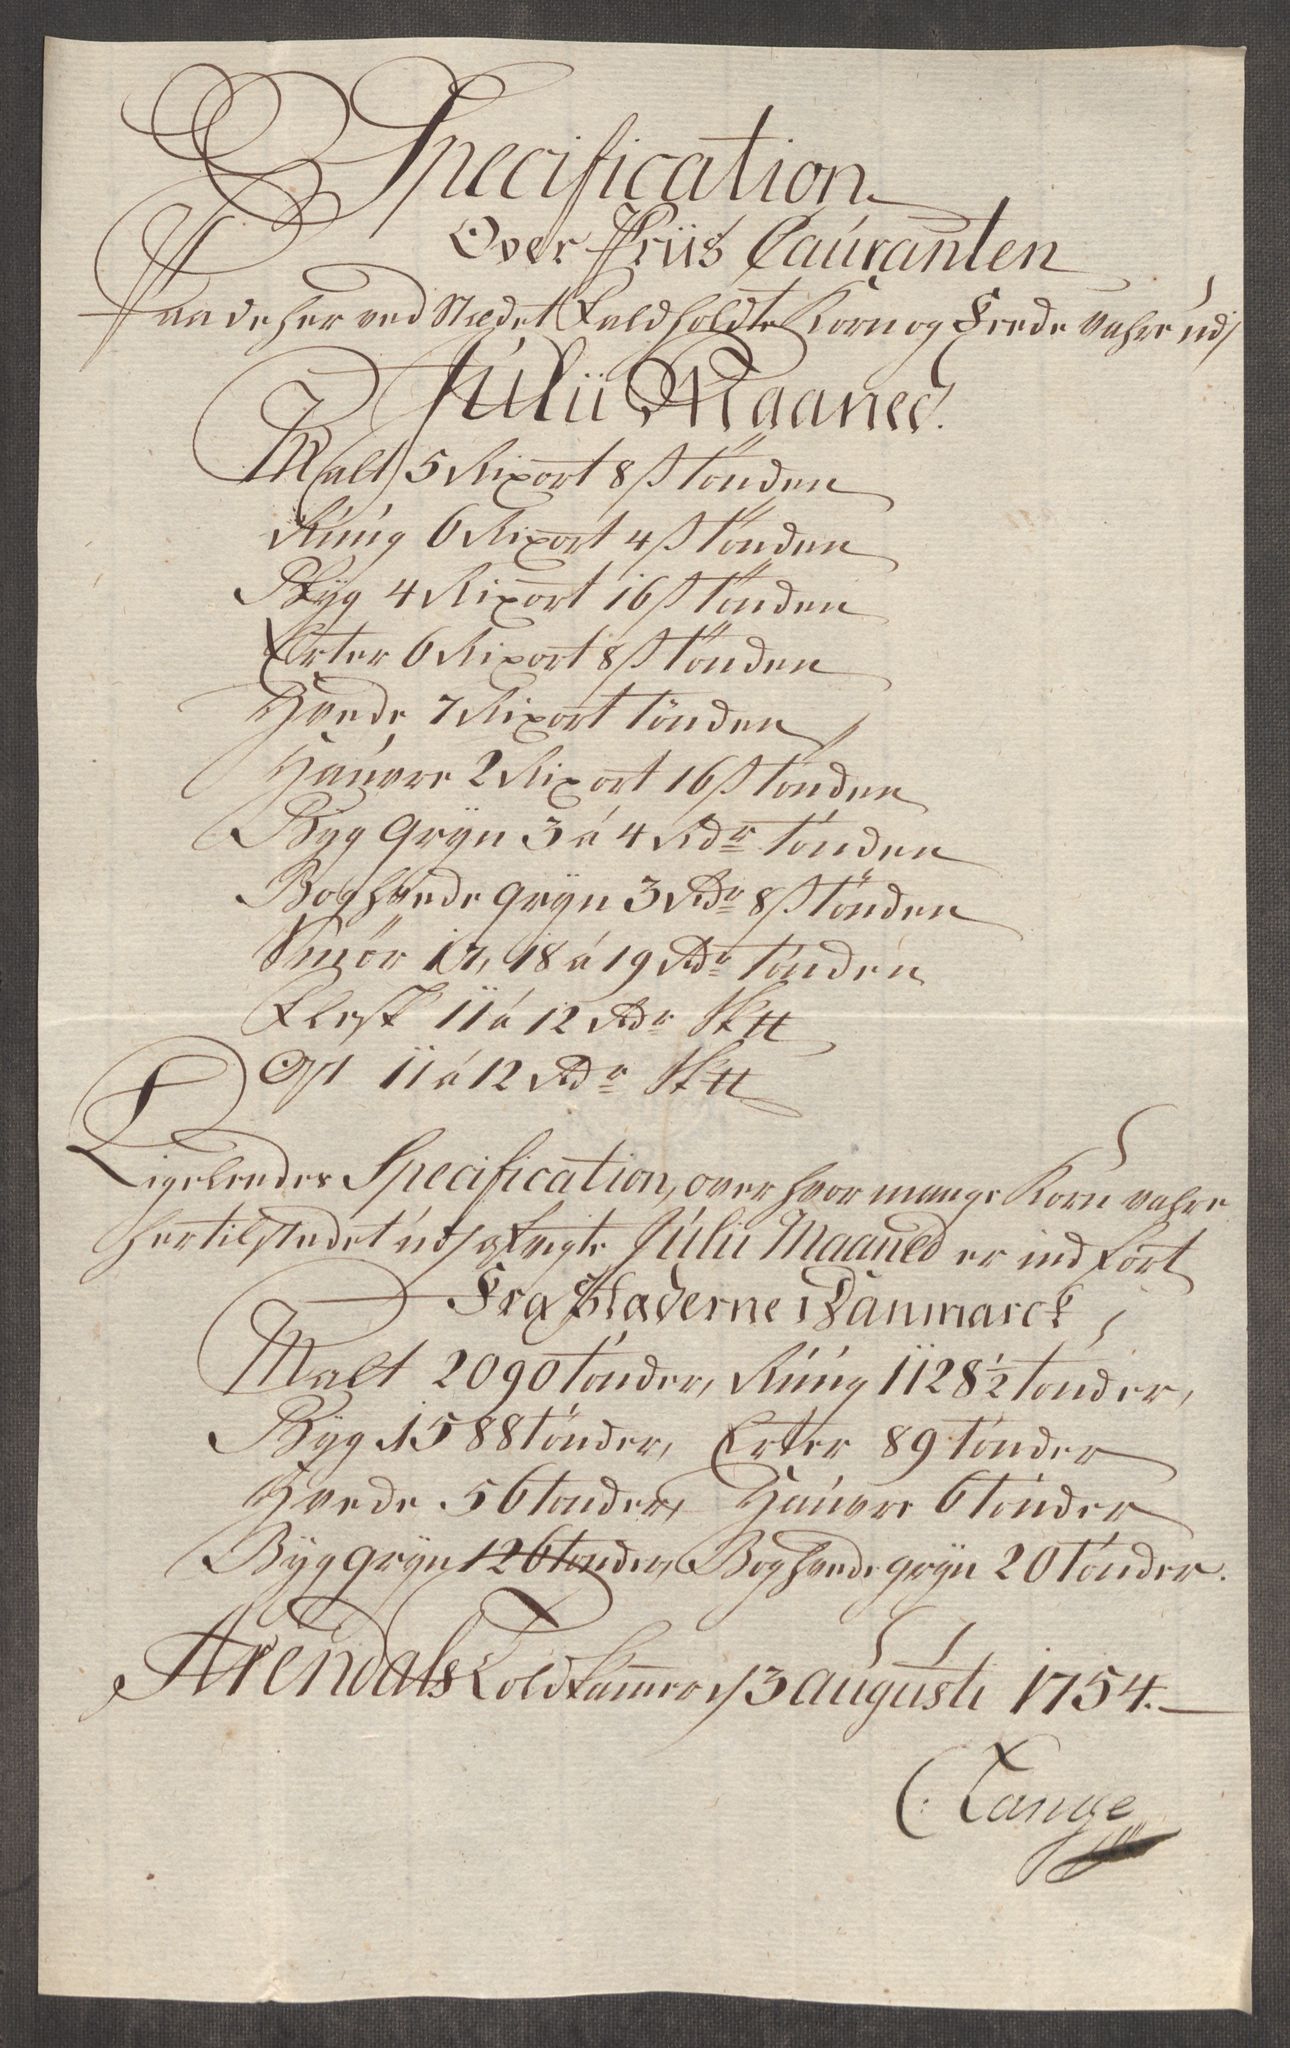 Specification
Over Priis Cauranten
Paa de her ved Stædet Faldholdte Korn og Fede vahre udj
Julii Maaned.
Malt 5 Rixort 8 ß tönden
Rúúg 6 Rixort 4 ß tönden
Byg 4 Rixort 16 ß tönden
Erter 6 Rixort 8 ß tönden
Hvede 7 Rixort tönden
Haúvre 2 Rixort 16 ß tönden
Byg Gryn 3 á 4 Rdr tönden
Boghvede gryn 3 Rdr 8 ß tönden
Smör 17, 18 á 19 Rdr tönden
Flesk 11 á 12 Rdr Sk tt
Ost 11 á 12 Rdr Sk tt
Ligeleedes Specification, over hvor mange Korn vahre
her til stædet udj afvigte Júlii Maaned er ind fört
Fra Stæderne i Danmarck
Malt 2090 tönder, Rúúg 1128 1/2 tönder,
Byg 1588 tönder, Erter 89 tönder
Hvede 56 tönder, Haúvre 6 tönder
Byg gryn 126 tönder, Boghvede gryn 20 tönder.
Arendals Toldkammer d 3 augusti 1754.
C: Lange